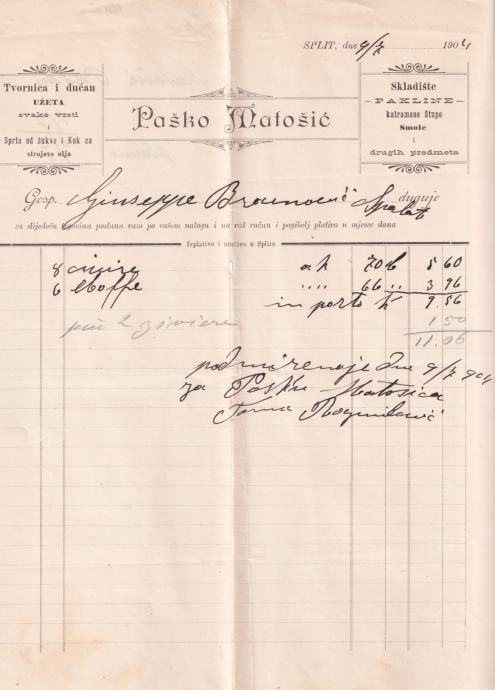 SPLIT, dne 9/7 1904
Tvornica i dućan
UŽETA
svake vrsti
i
Sprta od žukve i Kok za
strojeve ulja
Paško Matošić
Skladište
PAKLINE
katramane Stupe
Smole
i
drugih predmeta
Gosp. Giuseppe duguje
za slijedeću trgovinu poslanu vam po vašem nalogu i na vaš račun i pogibelj plativo u mjesec dana
Isplativo i utuživo u Splitu
8 a K 70 5 60
6 " " 66 " 3 96
importo K 9.56
più 2 giviere 1 50
11.06
podmireno je dne 9/7 904
za Pašku Matošića